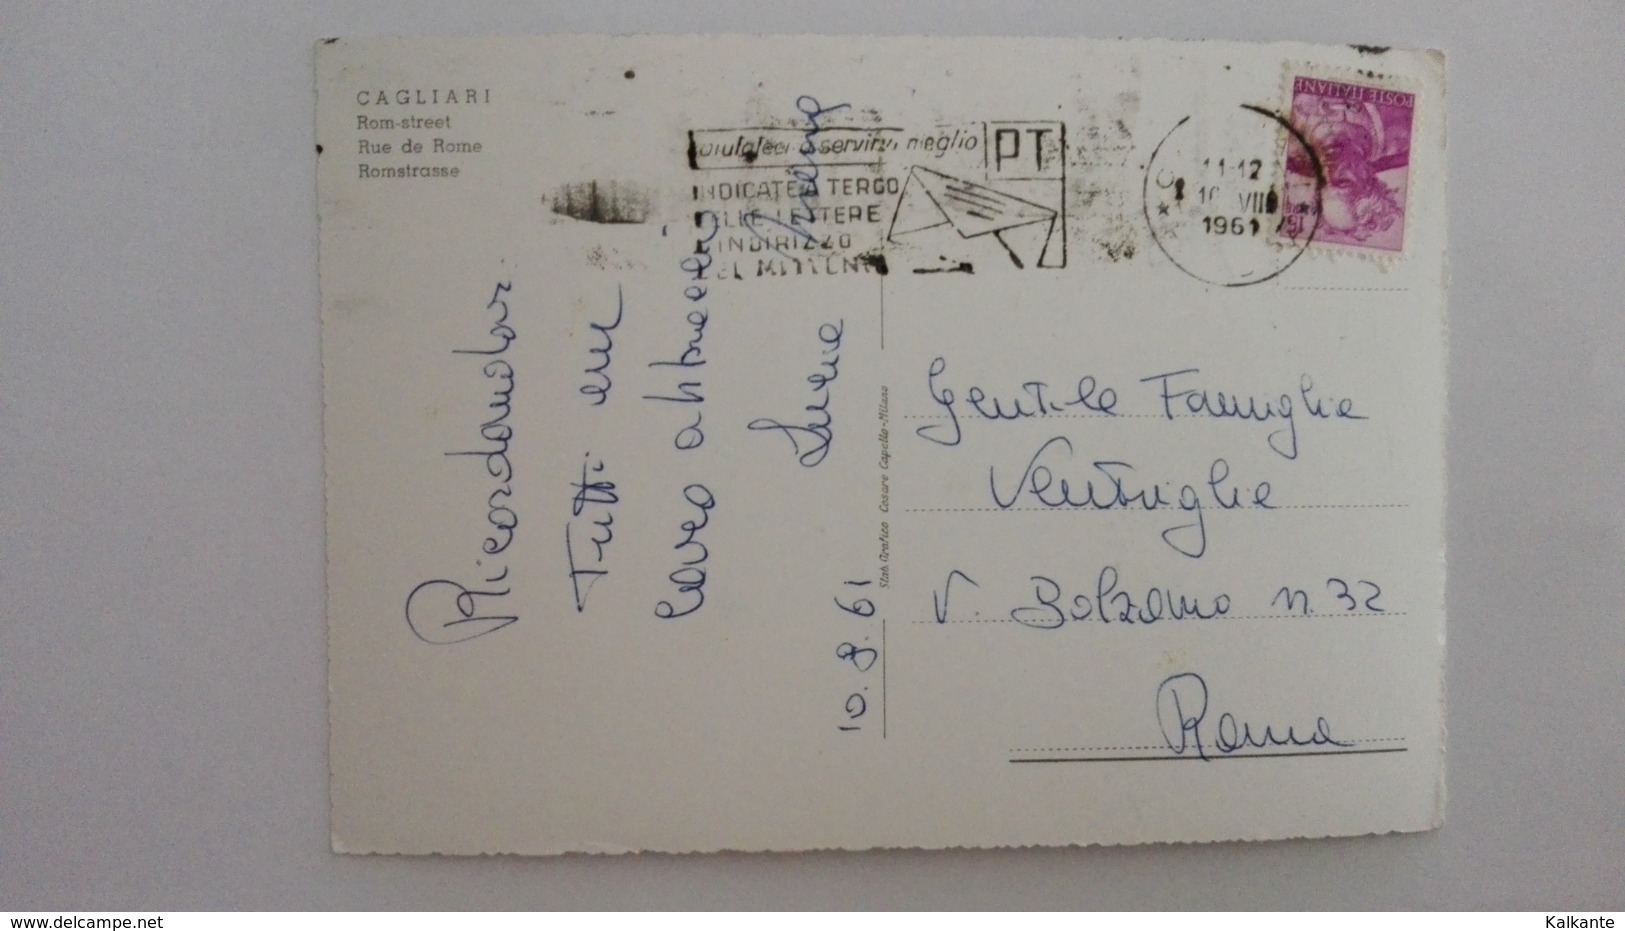 CAGLIARI
Rom-street
Rue de Rome
Romstrasse
aiutateci a servirvi meglio
PT
INDICATE A TERGO
DELLE LETTERE
L'INDIRIZZO
DEL MITTENTE
11-12
10 VIII
1961
POSTE ITALIANE
Ricordandovi
Tutti con
caro abbraccio
10.8.61
Stab. Grafico Cesare Capello-Milano
Gentile Famiglia
Ventriglia
V. Bolzano n. 32
Roma
delcampe.net
Kalkante